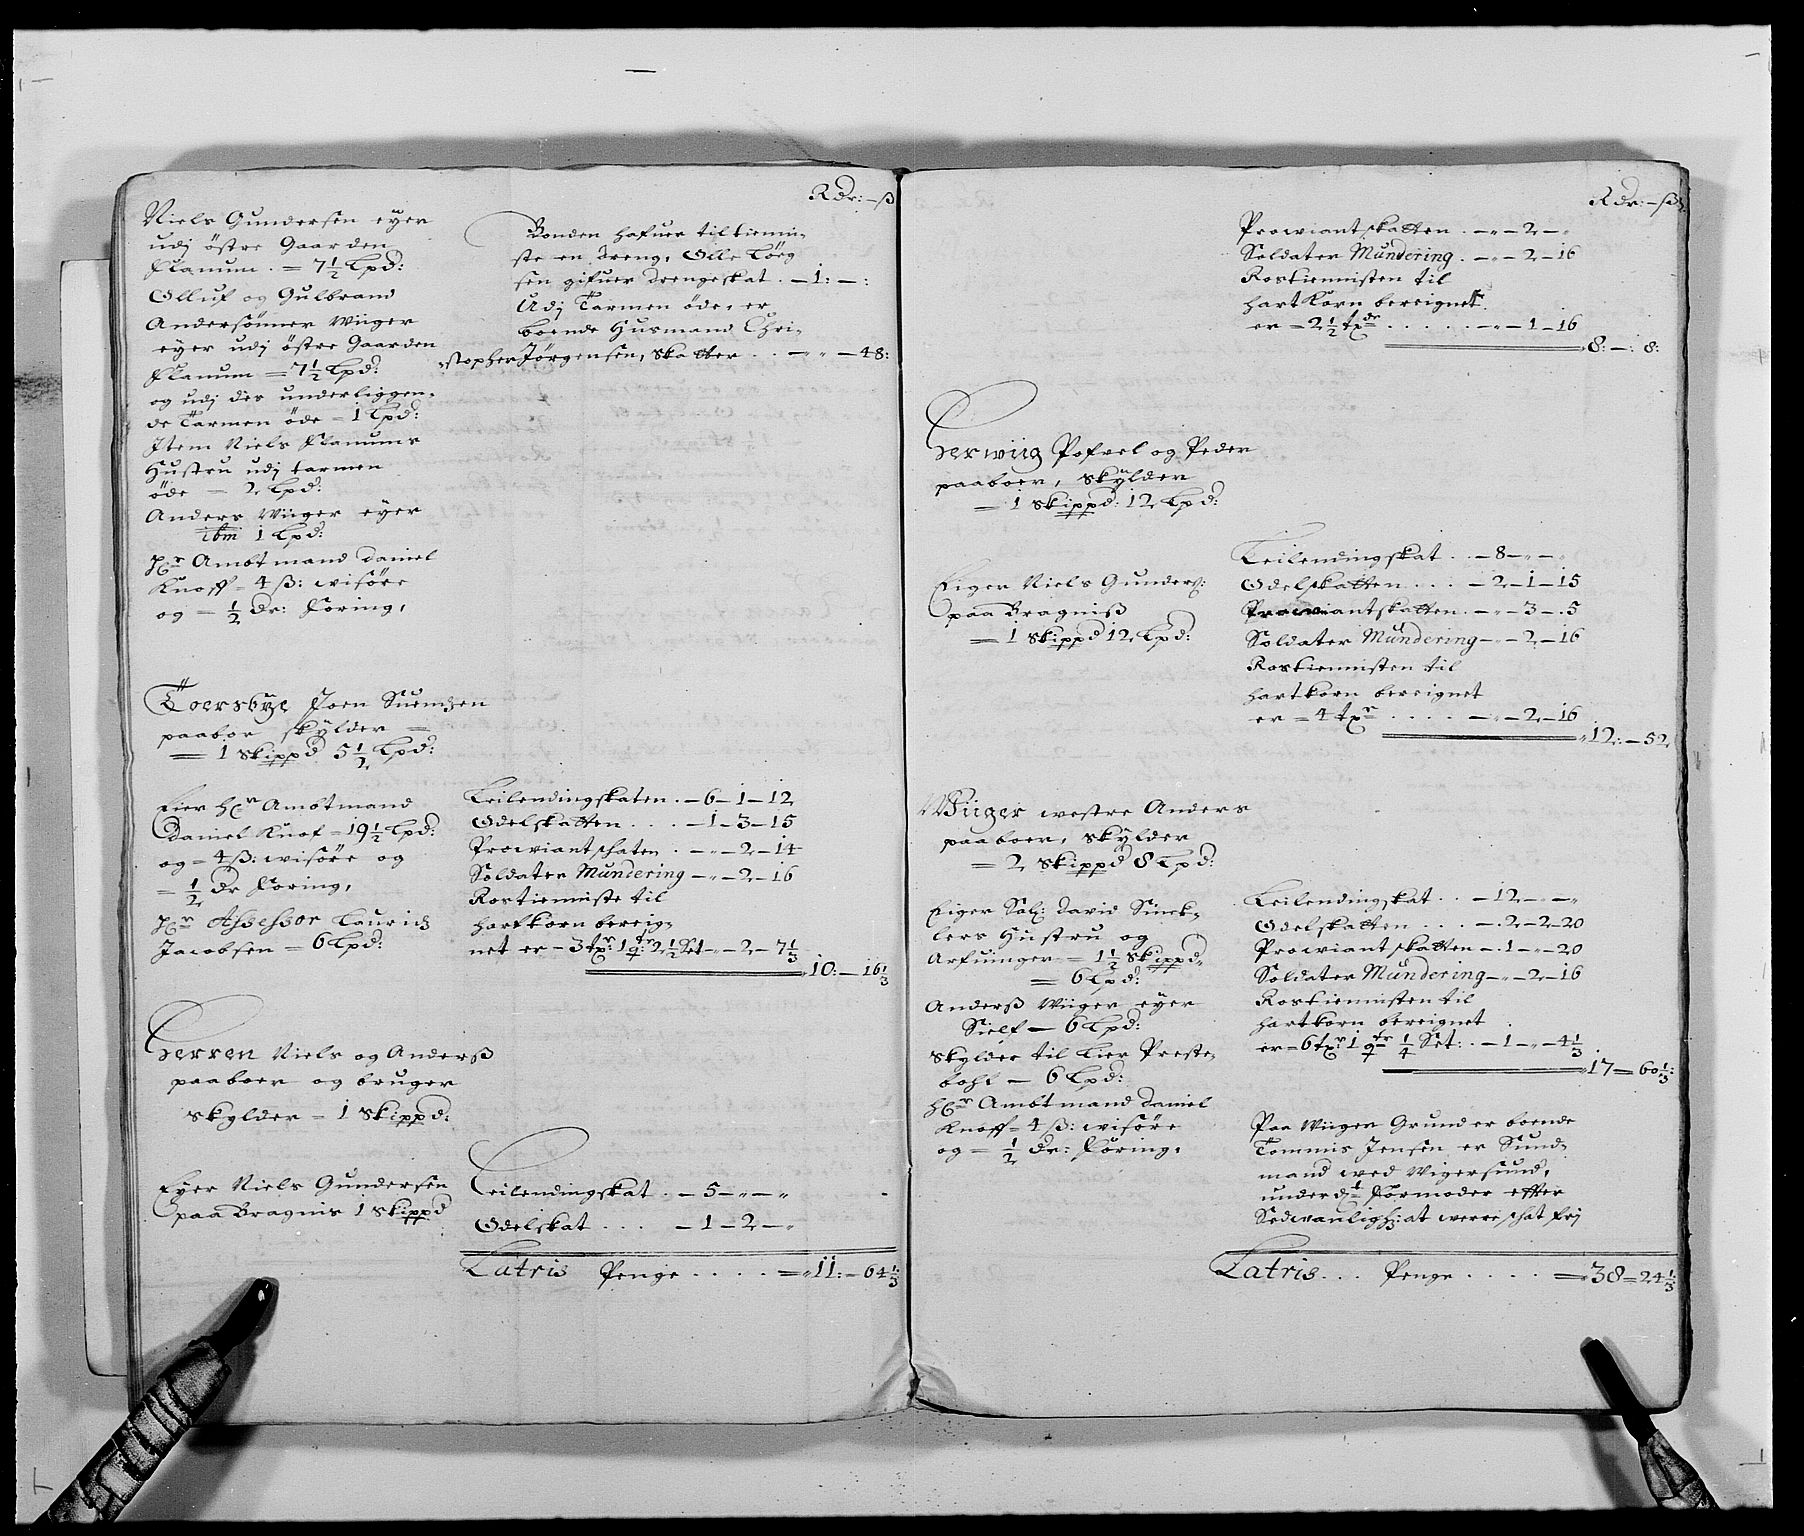 Rdr: – ß
Niels Gundersen eyer
udj östre Gaarden
Flanum. = 7½ Lpd:
Olluf og Gulbrand
Andersönner Wiiger
eyer udj östre Gaarden
Flanum = 7½ Lpd:
og udj des underliggen-
de Tarmen öde = 1 Lpd:
Item Niels Flanums
Hustru udj tarmen
öde = 2 Lpd:
Anders Wiiger eyer
ibm 1 Lpd:
Hr Ambtmand Daniel
Knoff = 4 ß: wisöre
og = ½ dr: Foring,
Bonden hafuer til tienni-
ste en dreng, Olle Törg
sen gifuer drengeskat . – 1: – :
Udj Tarmen öde, er
boende Husmand Chri-
stopher Jörgensen, skatter . . – „ „ – 48:
Toersbye Joen Suendzen
paaboer skylder =
= 1 Skippd 5½ Lpd:
Eier Hr Ambtmand
Daniel Knof = 19½ Lpd:
og = 4 ß: wisöre og
= ½ dr Foring,
Hr Assessor Lauridz
Jacobsen = 6 Lpd:
Leilendingskaten . – 6 – 1 – 12
Odelskatten . . . . – 1 – 3 – 15
Prowiantschaten . – „ – 2 – 14
Soldater Mundering – „ – 2 – 16
Rostienniste til
hartkorn bereig-
net er – 3 tr: 1 qr 2½ Set – „ – 2 – 7⅓
10: – 16⅓
Herren Niels og Anderß
paaboer og bruger
skylder = 1 Skippd:
Eyer Niels Gundersen
paa Bragnis 1 Skippd
Leilendingskat . – 5 – „ – „
Odelskat . . . . – 1 – 2 – „
Latris Penge . . . . = 11: – 64⅓
Rdr: – ß
Prowiantskatten . – „ – 2 – „
Soldater Mundering . – „ – 2 – 16
Rostiennisten til
hartkorn bereignet
er = 2½ tr . . . . . – „ – 1 – 16
8: – : 8:
Herwiig Pofvel og Peder
paaboer, skylder
= 1 Skippd: 12 Lpd:
Eiger Niels Gunders:
paa Bragniß
= 1 Skippd 12 Lpd:
Leilendingskat . . – 8 – „ – „
Odelskatten . . . – 2 – 1 – 15
Prowiantskatten . – „ – 3 – . 5
Soldater Mundering – „ – 2 – 16
Rostiennisten til
hartkorn bereignet
er = 4 tr . . . . – „ – 2 – 16
12: – 52
Wiiger westre Anders
paaboer, skylder
= 2 Skippd 8 Lpd:
Eiger Sal: David Sinck-
lers Hustru og
Arfuinger = 1½ Skippd
= 6 Lpd:
Anderß Wiiger eyer
Sielf – 6 Lpd:
skylder til Lier Preste-
bohl – 6 Lpd:
Hr Ambtmand Daniel
Knoff = 4 ß: wisöre
og = ½ dr: Föring,
Leilendingskat . . – 12 – „ – „
Odelskatten . . . – 2 – 2 – 20
Prowiantskatten – . 1 – „ – 20
Soldater Mundering – „ – 2 – 16
Rostiennisten til
hartkorn bereignet
er = 6 tr 1 qr ¼ Set: . – 1 – „ – 4⅓
17 = 60⅓:
Paa Wiiger Grund er boende
Tommis Jensen er Sund-
mand wed Wigersund,
under d: Formoder effter
Sedwanligh: at were schat frj
Latris . . . Penge . . . . = 38 = 24⅓